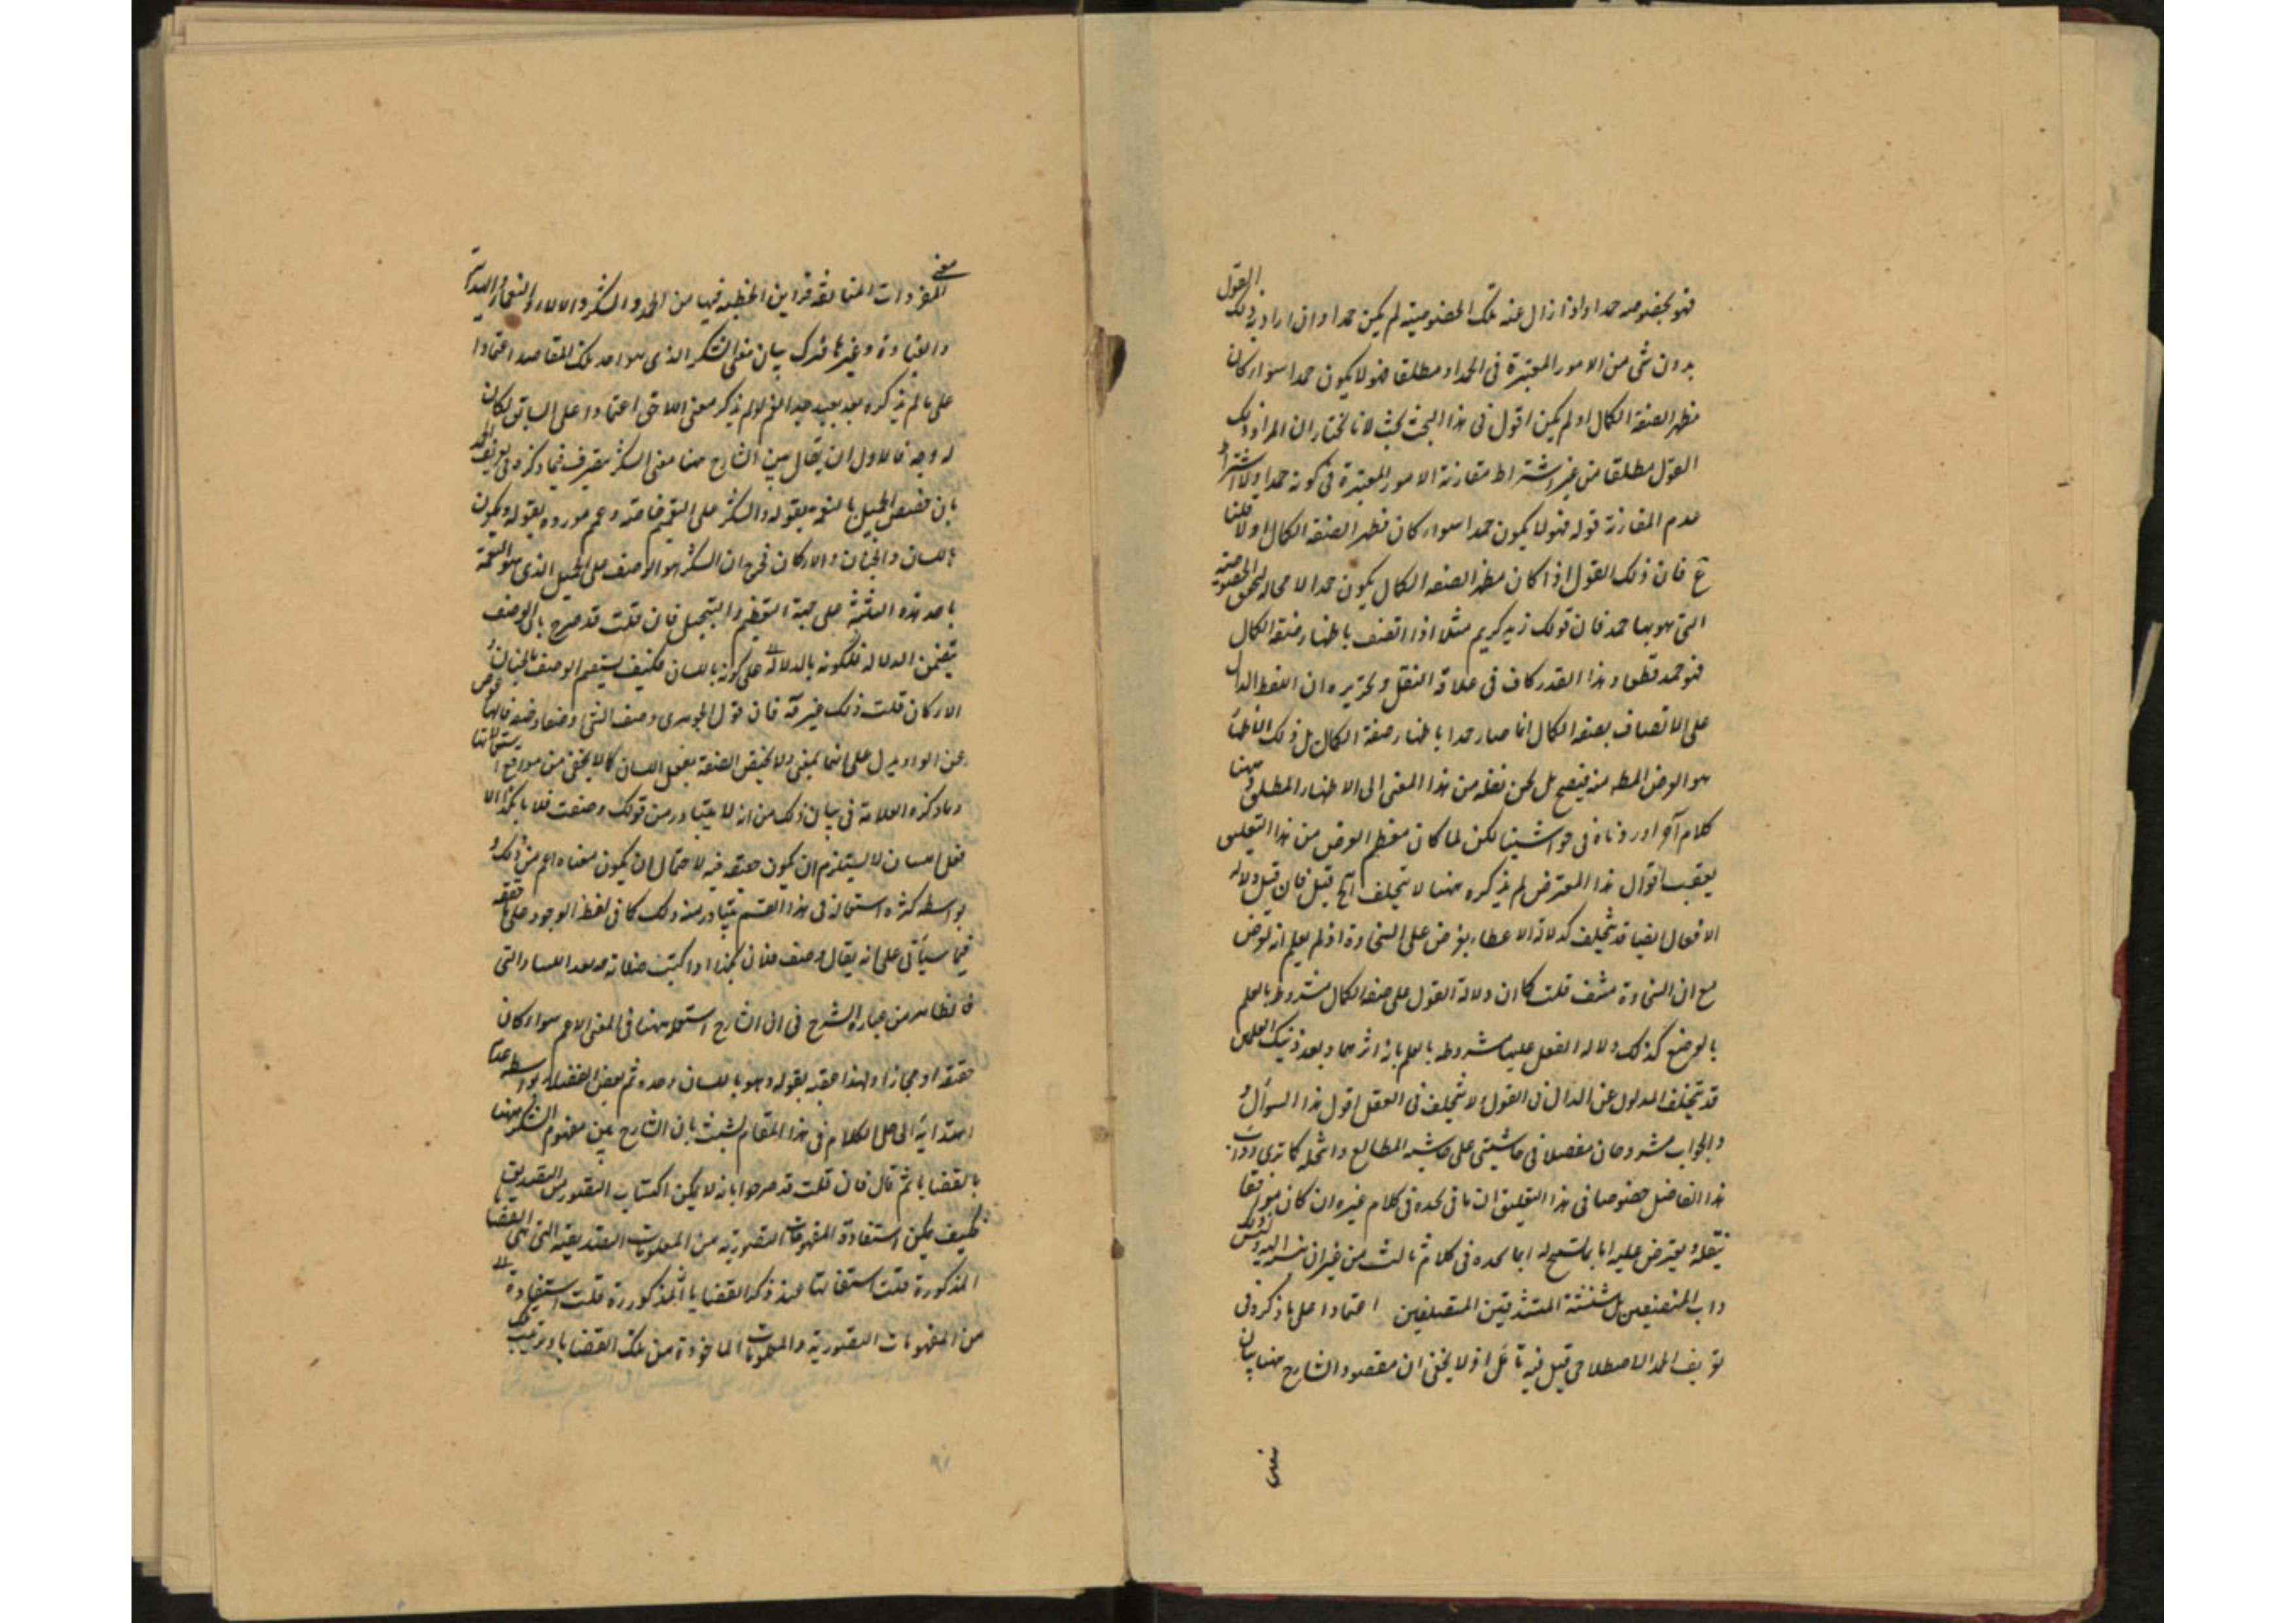 فهو بخصوصه حمدا واذا زال عنه تلك الخصوصية لم يكن حمدا وان اراد ذلك القول
بدون شى من الامور المعتبرة فى الحمد او مطلقا فهو لا يكون حمدا سواء كان
مظهرا لصفة الكمال او لم يكن اقول فى هذا البحث بحث لانا نختار ان المراد ذلك
القول مطلقا من غير اشتراط مقارنة الامور المعتبرة فى كونه حمدا ولا اشتراط
عدم المقارنة قوله فهو لا يكون حمدا سواء كان مظهرا لصفة الكمال اولا قلنا
فان ذلك القول اذا كان مظهرا لصفة الكمال يكون حمدا لا محالة لتحقق الخصوصية
التى هو بها حمد فان قولك زيد كريم مثلا اذا اتصف باظهار صفة الكمال
فهو حمد قطعا وهذا القدر كاف فى علاقة النقل وتحريره ان اللفظ الدال
على الاتصاف بصفة الكمال انما صار حمدا باظهار صفة الكمال بل ذلك الاظهار
هو الغرض منه فيصح بل يحسن نقله من هذا المعنى الى الاظهار المطلق وههنا
كلام آخر اوردناه فى حواشينا لكن لما كان معظم الغرض من هذا التعليق
اقوال هذا المعترض لم نذكره ههنا لا يتخلف الخ قيل فان قيل دلالة
الافعال ايضا قد تتخلف كدلالة الاعطاء لغرض على السخاوة اذ لم يعلم انه لغرض
مع ان السخاوة منتف قلت كما ان دلالة القول على صفة الكمال مشروط بالعلم
بالوضع كذلك دلالة الفعل عليها مشروطه بالعلم بانه اثرها وبعد ذينك العلمين
قد يتخلف المدلول عن الدال فى القول ولا يتخلف فى العقل اقول هذا السوال و
الجواب مشروحان مفصلا فى حاشيتى على حاشية المطالع وانتحله كما ترى وداب
هذا الفاضل خصوصا فى هذا التعليق ان ما فى يجده فى كلام غيره ان كان موافقا
ينقله ويعترض عليه اما بما سنح له او بما يجده فى كلام ثالث من غير ان ينسبه اليه وليس ذلك
داب المنصفين بل شنشنة المتشدقين المتصلفين اعتمادا على ما ذكر فى
تعريف الحمد الاصطلاحى قيل فيه تأمل اذ لا يخفى ان مقصود الشارح ههنا بيان
معنى
المفردات الواقعة فى الخطبة فيها من الحمد والشكر والالاء والنعماء والهداية
والغباوة وغيرها فترك بيان معنى الشكر الذى هو احد تلك المقاصد اعتمادا
على ما لم يذكره بعد بعيد جدا نعم لو لم يذكر معنى اللاحق اعتمادا على السابق لكان
له وجه فالاولى ان يقال بين الشارح ههنا معنى الشكر بتصرف فيما ذكره فى تعريف الحمد
بان خصص الجميل بالنعمة بقوله والشكر على النعمة خاصة وعمم مورده بقوله ويكون
باللسان والجنان والاركان فخرج ان الشكر هو الوصف على الجميل الذى هو النعمة
باحد هذه الثلثة على جهة التعظيم والتبجيل فان قلت قد صرح بان الوصف
يتضمن الدلالة على كونه باللسان فكيف يستقيم الوصف بالجنان و
الاركان قلت ذلك غير فان قول الجوهرى وصف الشئ وصفا وصفة فالهاء عوض
عن الواو يدل على انهما بمعنى ولا يختص الصفة بفعل اللسان كما لا يخفى من مواقع استعمالاتها
وما ذكره العلامة فى بيان ذلك من انه لا يتبادر من قولك وصفت فلانا بكذا الا
فعل اللسان لا يستلزم ان يكون حقيقة فيه لاحتمال ان يكون معناه اعم من ذلك و
بواسطه كثرة استعماله فى هذا القسم يتبادر منه ذلك كما فى لفظ الوجود على ما حققه
فيما سيأتى على انه يقال وصف فلان بكذا اذا كتبت صفاته
فالظاهر من عبارة الشرح فى ان الشارح استعمله ههنا فى المعنى الاعم سواء كان
حقيقة او مجازا ولهذا عقبه بقوله وهو باللسان وحده ثم بعض الفضلاء بواسطه عدم
اهتدائه الى حل الكلام فى هذا المقام تشبث بان الشارح بين مفهوم الشكر ههنا
بالقضايا ثم قال فان قلت قد صرحوا بانه لا يمكن اكتساب التصور من التصديق
فكيف يمكن استفادة المفهومات التصورية من المعلومات التصديقية التى هى القضايا
المذكورة قلت استفادتها عند ذكر القضايا المذكورة قلت استفادة
من المفهومات التصورية والمعلومات الماخوذة من تلك القضايا وترتيب